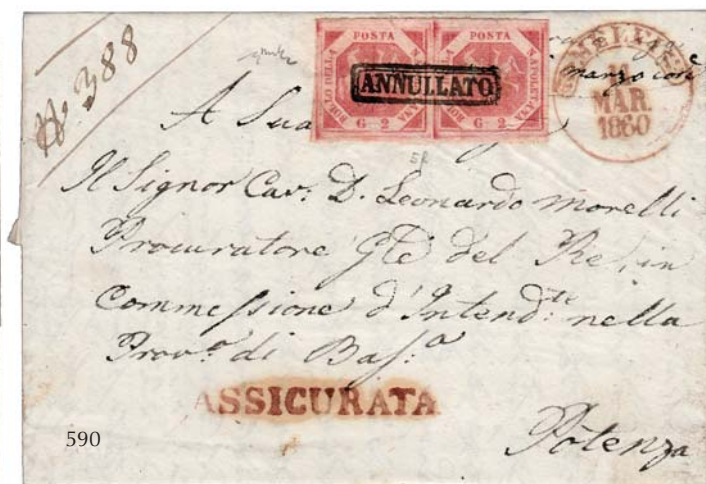 N. 388
BOLLO DELLA POSTA NAPOLETANA
G 2
BOLLO DELLA POSTA NAPOLETANA
G 2
ANNULLATO
MAR.
1860
marzo con
A Sua
Il Signor Cav. D. Leonardo Morelli
Procuratore Gle del Re, in
Commessione d'Intendte nella
Prov.a di Bas.a
ASSICURATA
Potenza
590